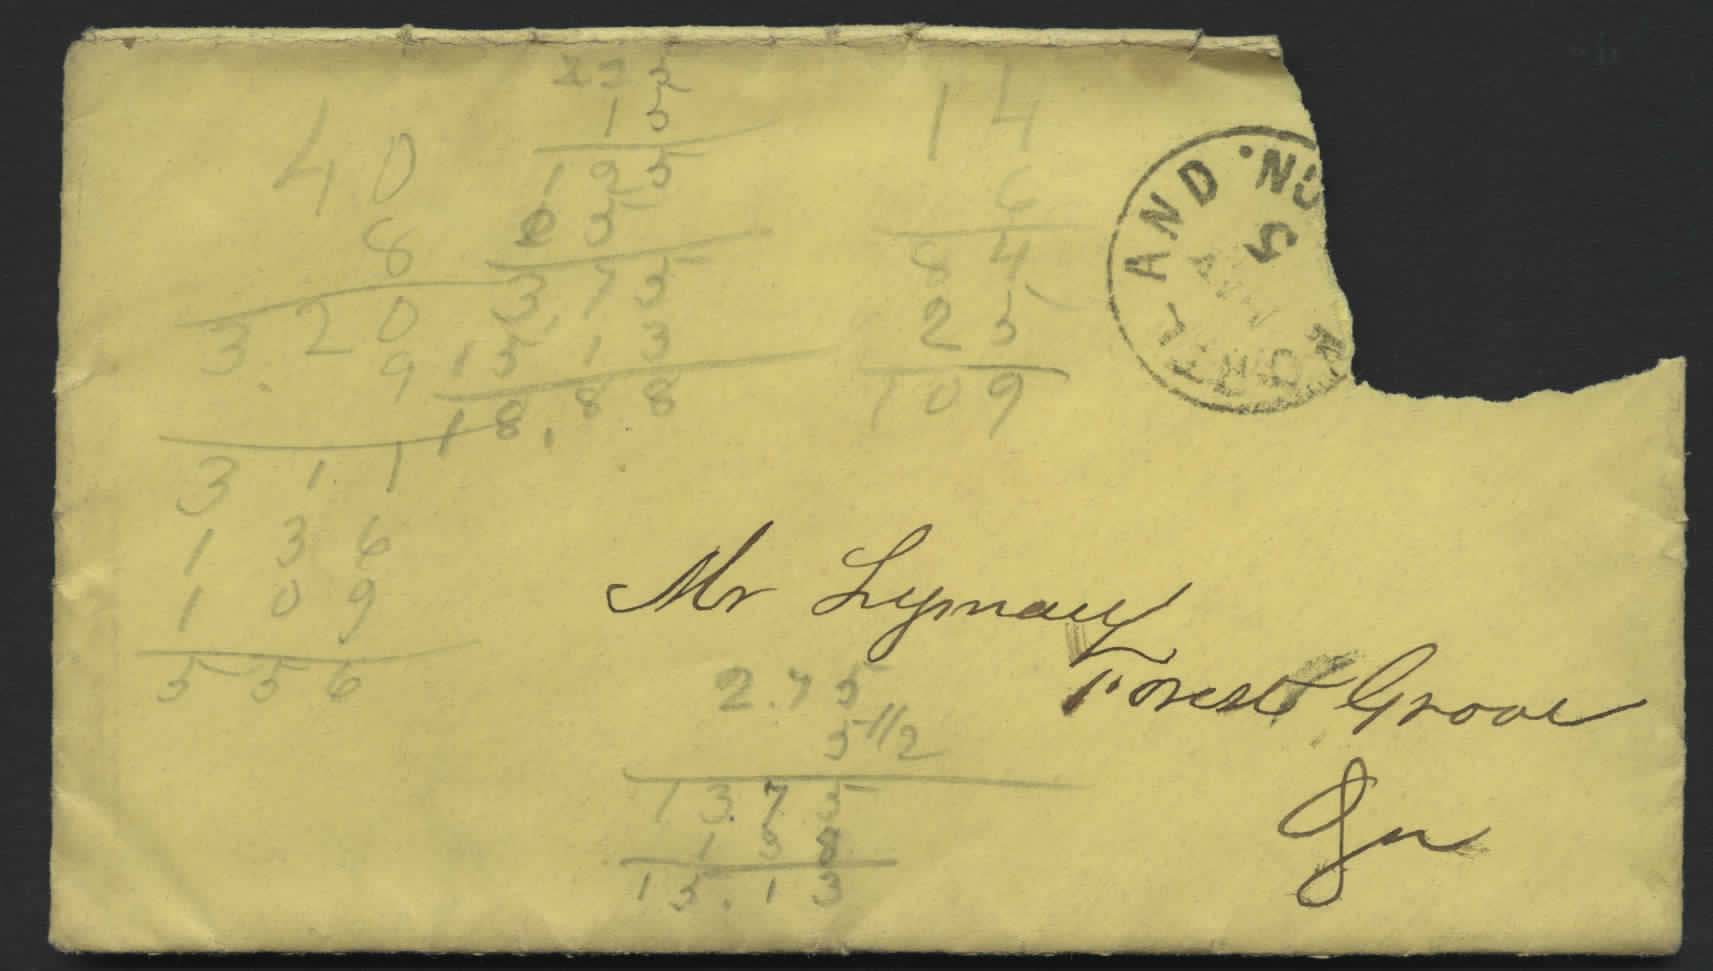 40
8
320
9
311
136
109
556
15
125
3.75
15.13
18.88
14
6
84
25
109
PORTLAND
5
Mr Lyman
Forest Grove
Gn
2.75
5 1/2
13.75
1 3 8
15.13